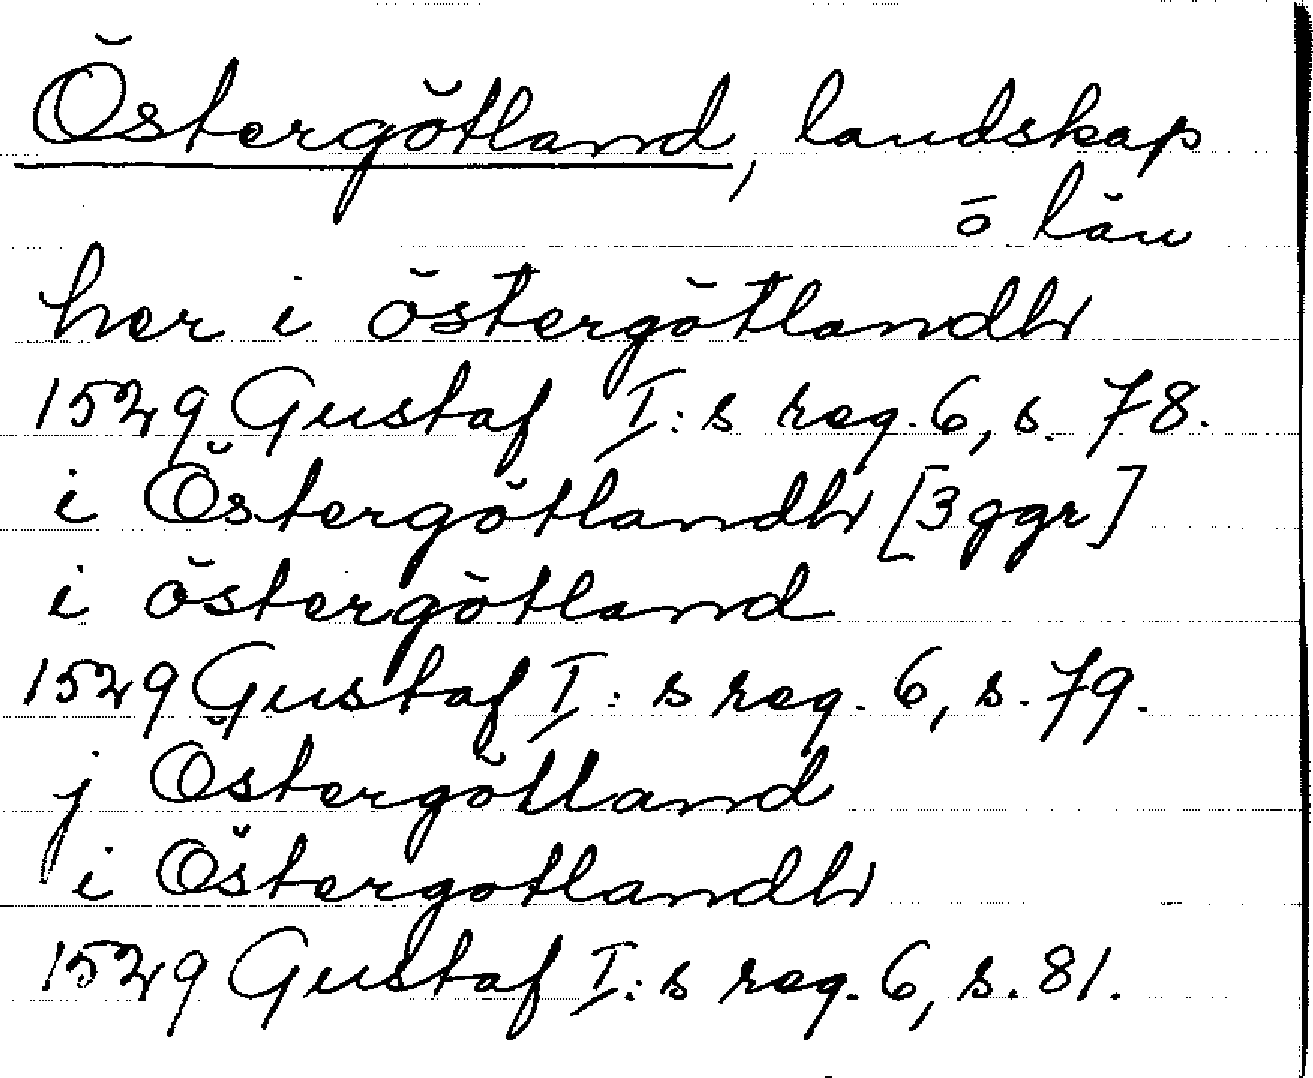 Östergötland, landskap
o. län
her i östergötlandh
1529 Gustaf I:s reg. 6, s. 78.
i Östergötlandh [3 ggr]
i östergötland
1529 Gustaf I:s reg. 6, s. 79.
j Östergötland
i Östergotlandh
1529 Gustaf I:s reg. 6, s. 81.